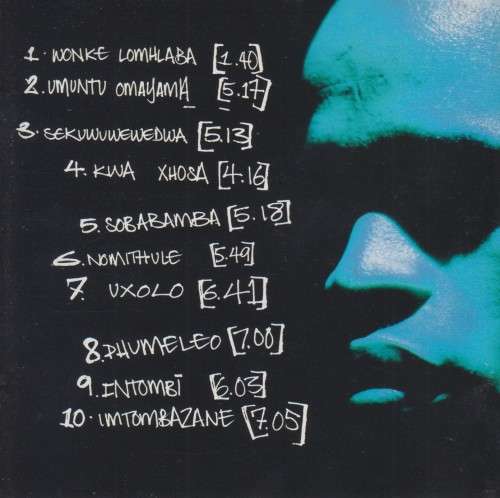 1. WONKE LOMHLABA [1.40]
2. UMUNTU OMAYAMA [5.17]
3. SEKUWUWEWEDWA [5.13]
4. KWA XHOSA [4.16]
5. SOBABAMBA [5.18]
6. NOMITHULE [5.49]
7. UXOLO [6.41]
8. PHUMELEO [7.00]
9. INTOMBI [6.03]
10. IMTOMBAZANE [7.05]